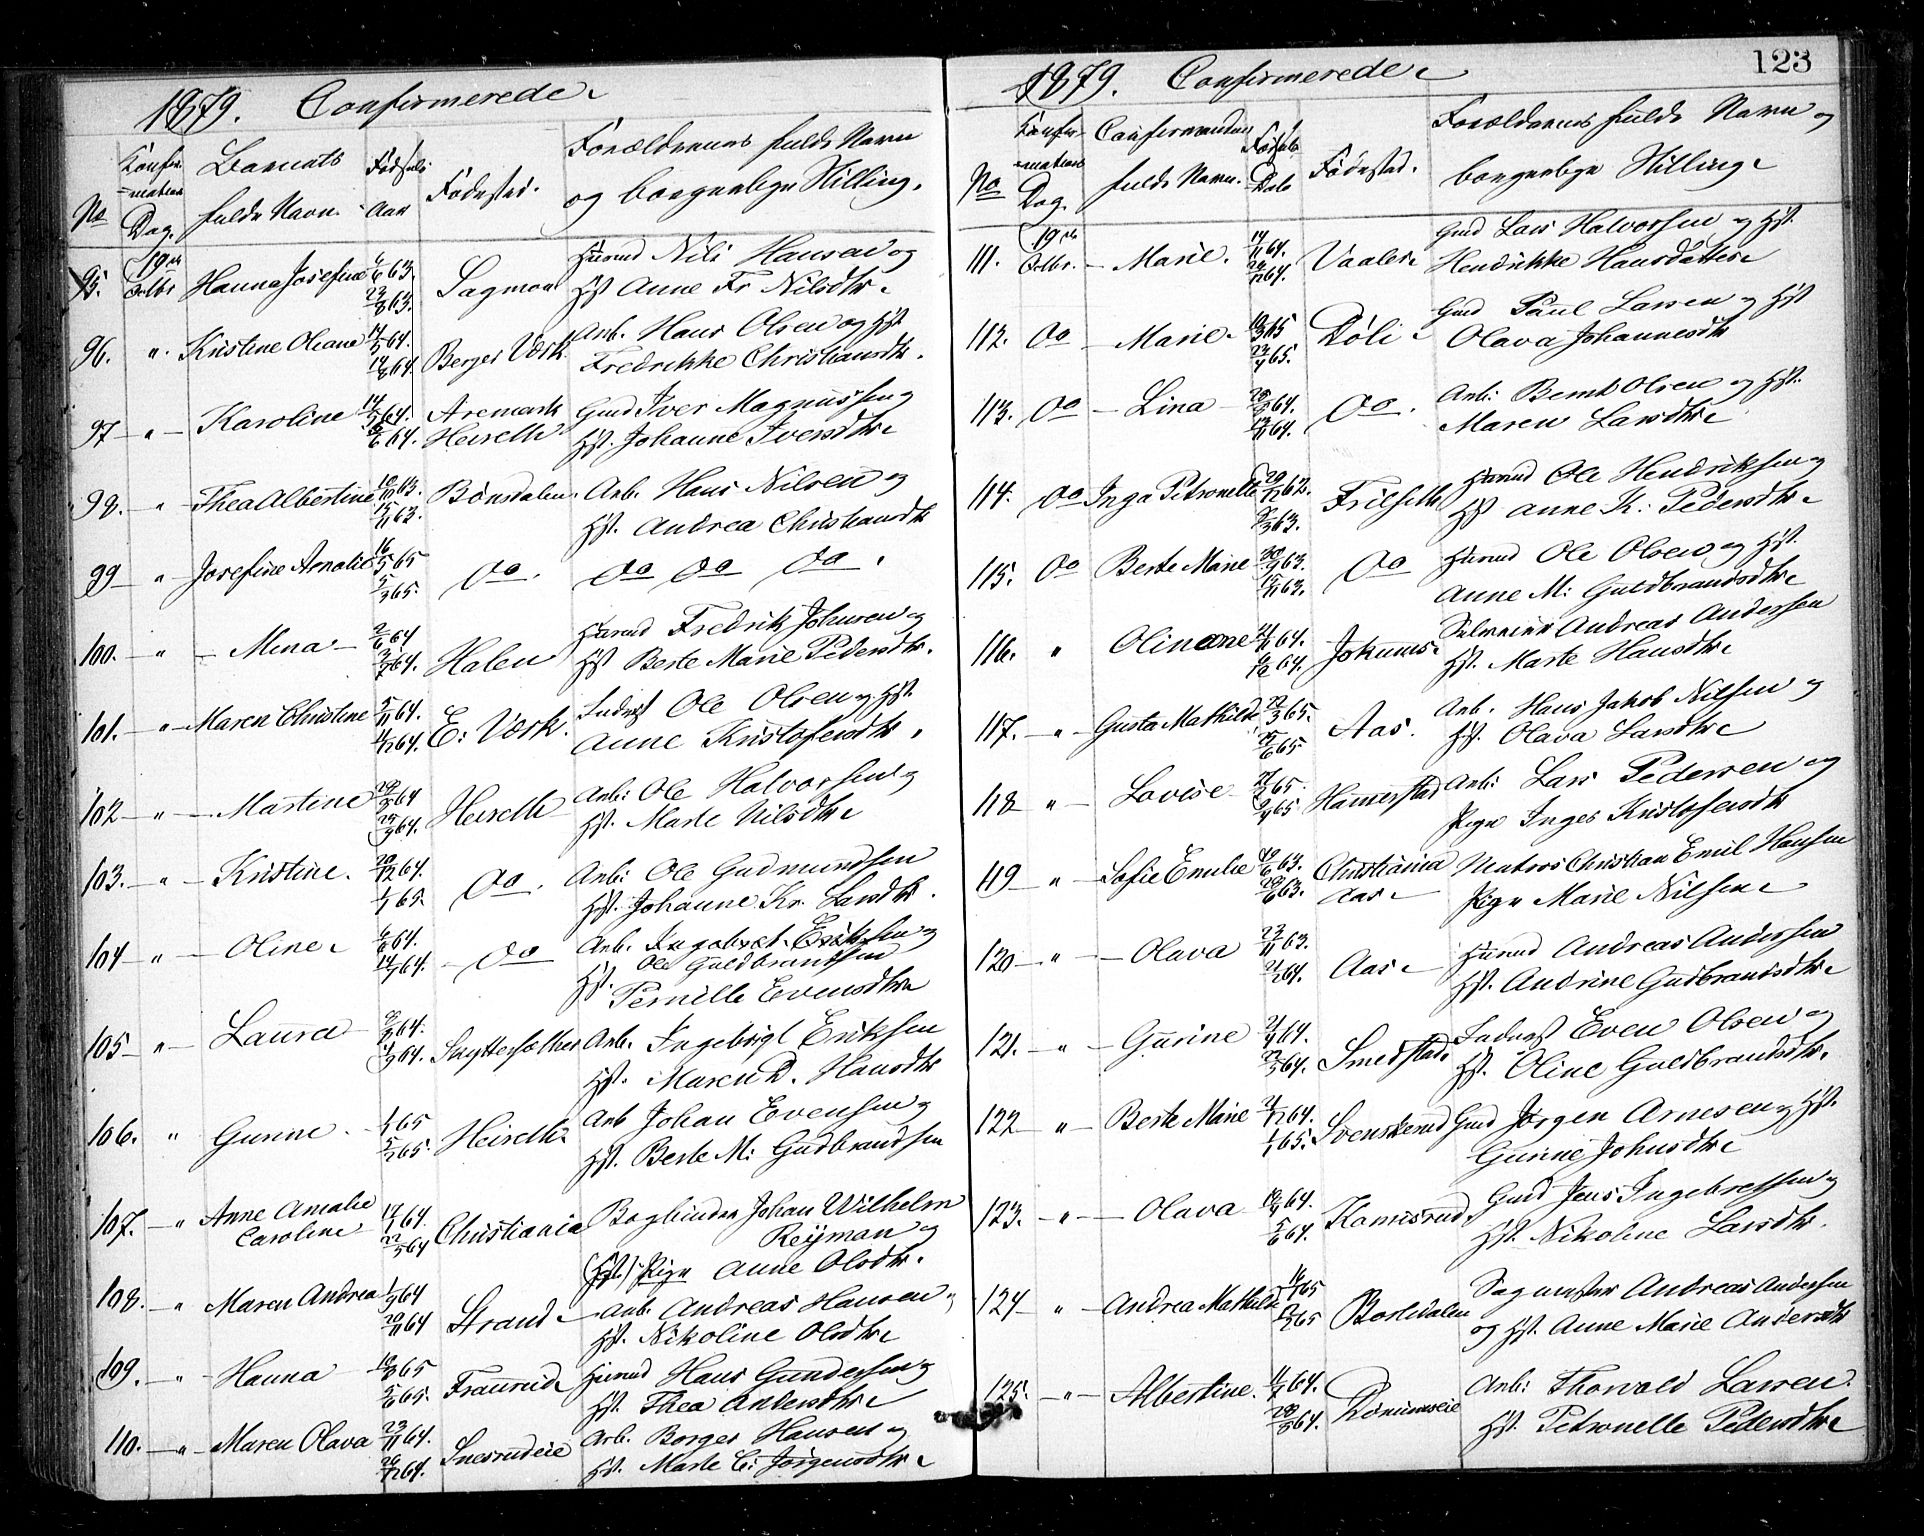 1879. Confirmerede
No
Konfir-
-mations
Dag.
Barnets
fulde Navn.
Fødsels
Aar
Fødested.
Forældrenes fulde Navn
og borgerlige Stilling.
95. 19de Octbr Hanna Josefine 63. 63. Sagmoen Husmd Nils Hansen og
Hst Anne Fr Nilsdtr
96. " Kristine Oliane 64. 64. Berger Værk Arb. Hans Olsen og Hst
Fredrikke Christiansdtr.
97 - " - Karoline 64. 64. Aremark Gmd Iver Magnussen og
Heiseth Hst. Johanne Iversdtr
98. - " - Thea Albertine 63. 63. Bönsdalen Arb. Hans Nilsen og
Hst. Andrea Christiansdtr
99 - " - Josefine Amalie 65 65. Do. Do Do Do.
100. - " - Mina 64 64. Halen Husmd Fredrik Johnsen og
Hst Berte Marie Pedersdtr.
101. - " - Maren Christine 5/11 64. 64. E. Værk. Inderst Ole Olsen og Hst.
Anne Kristofersdtr.
102 - " - Martine 64 64. Heiseth Arb. Ole Halvorsen og
Hst. Marte Nilsdtr
103. - " - Kristine. 64. 65. Do. Arb. Ole Gudmundsen
Hst. Johanne Kr. Larsdtr.
104 - " - Oline 64. 64. Do Arb. Ingebret Eriksen og
Ole Guldbrandsen
Hst. Pernille Evensdtr
105 - " - Laura 64. 64. Arb. Ingebrigt Eriksen
Hst. Maren D. Hansdtr
106. " Gurine 1/1 65 65. Heiseth Arb Johan Evensen og
Hst. Berte M. Gudbrandsen
107. - " Anne Amalie Caroline 64. 64 Christiania Bogbinder Johan Wilhelm
Reijman og
(Hst.) Pige Anne Olsdtr.
108. - " Maren Andrea 64 64 Strand Arb. Andreas Hansen og
Hst. Nikoline Olsdtr
109. - " - Hanna 65 65. Fraurud Husmd Hans Gundersen og
Hst. Thea Andersdtr
110. - " - Maren Olava 64. 64. Snesrudeie Arb. Borger Hansen og
Hst. Marte C. Jørgensdtr
123
1879. Confirmerede
No
Konfir-
-mations
Dag.
Confirmanden
fulde Navn.
Fødsels
Dato
Fødested.
Forældrenes fulde Navn og
borgerlige Stilling
111. 19de Octbr. - Marie. 64. 64. Vaaler Gmd Lars Halvorsen og Hst.
Hendrikke Hansdatter
112. Do - Marie 65. Döli Gmd Paul Larsen og Hst
Olava Johannesdtr
113. Do - Lina 64. 64. Do. Arb: Bernt Olsen og Hst.
Maren Larsdtr
114. Do Inga Petronelle 62. 63. Frilseth Husmd Ole Hendriksen og
Hst Anne K. Pedersdtr
115. Do Berte Marie 63. 63. Do Husmd Ole Olsen og Hst.
Anne M: Guldbrandsdtr
116. " Olinane 64. 64. Andreas Andersen
Hst. Marte Hansdtr
117. - " - Gusta Mathilde 65. 65 Aas. Arb. Hans Jakob Nilsen og
Hst. Olava Larsdtr
118 " - Lovise 65. 65 Hammerstad Arb: Lars Pedersen og
Pige Inger Kristofersdtr
119 - " - Sofie Emelie 63. 63. Christiania Matros Christian Emil Hansen
Aas Pige Marie Nilsen
120 - " - Olava 63. 64. Aas Husmd Andreas Andersen
Hst. Andrine Gudbrandsdtr
121. - " - Gurine 64. 64. Smedstad Inderst Even Olsen og
Hst. Oline Guldbrandsdtr.
122 - " - Berte Marie 64. 65. Svenskerud Gmd Jørgen Arnesen og Hst.
Gurine Johnsdtr
123. - " - Olava 64. 64. Kamisrud Gmd Jens Ingebretsen og
Hst. Nikoline Larsdtr.
124 " - Andrea Mathilde 65 65 Bøhlidalen Sagmester Andreas Andersen
og Hst. Anne Marie Andersdtr
125. - " - Albertine. 64. 64. Rönumseie Arb: Thorvald Larsen.
Hst. Petronelle Pedersdtr